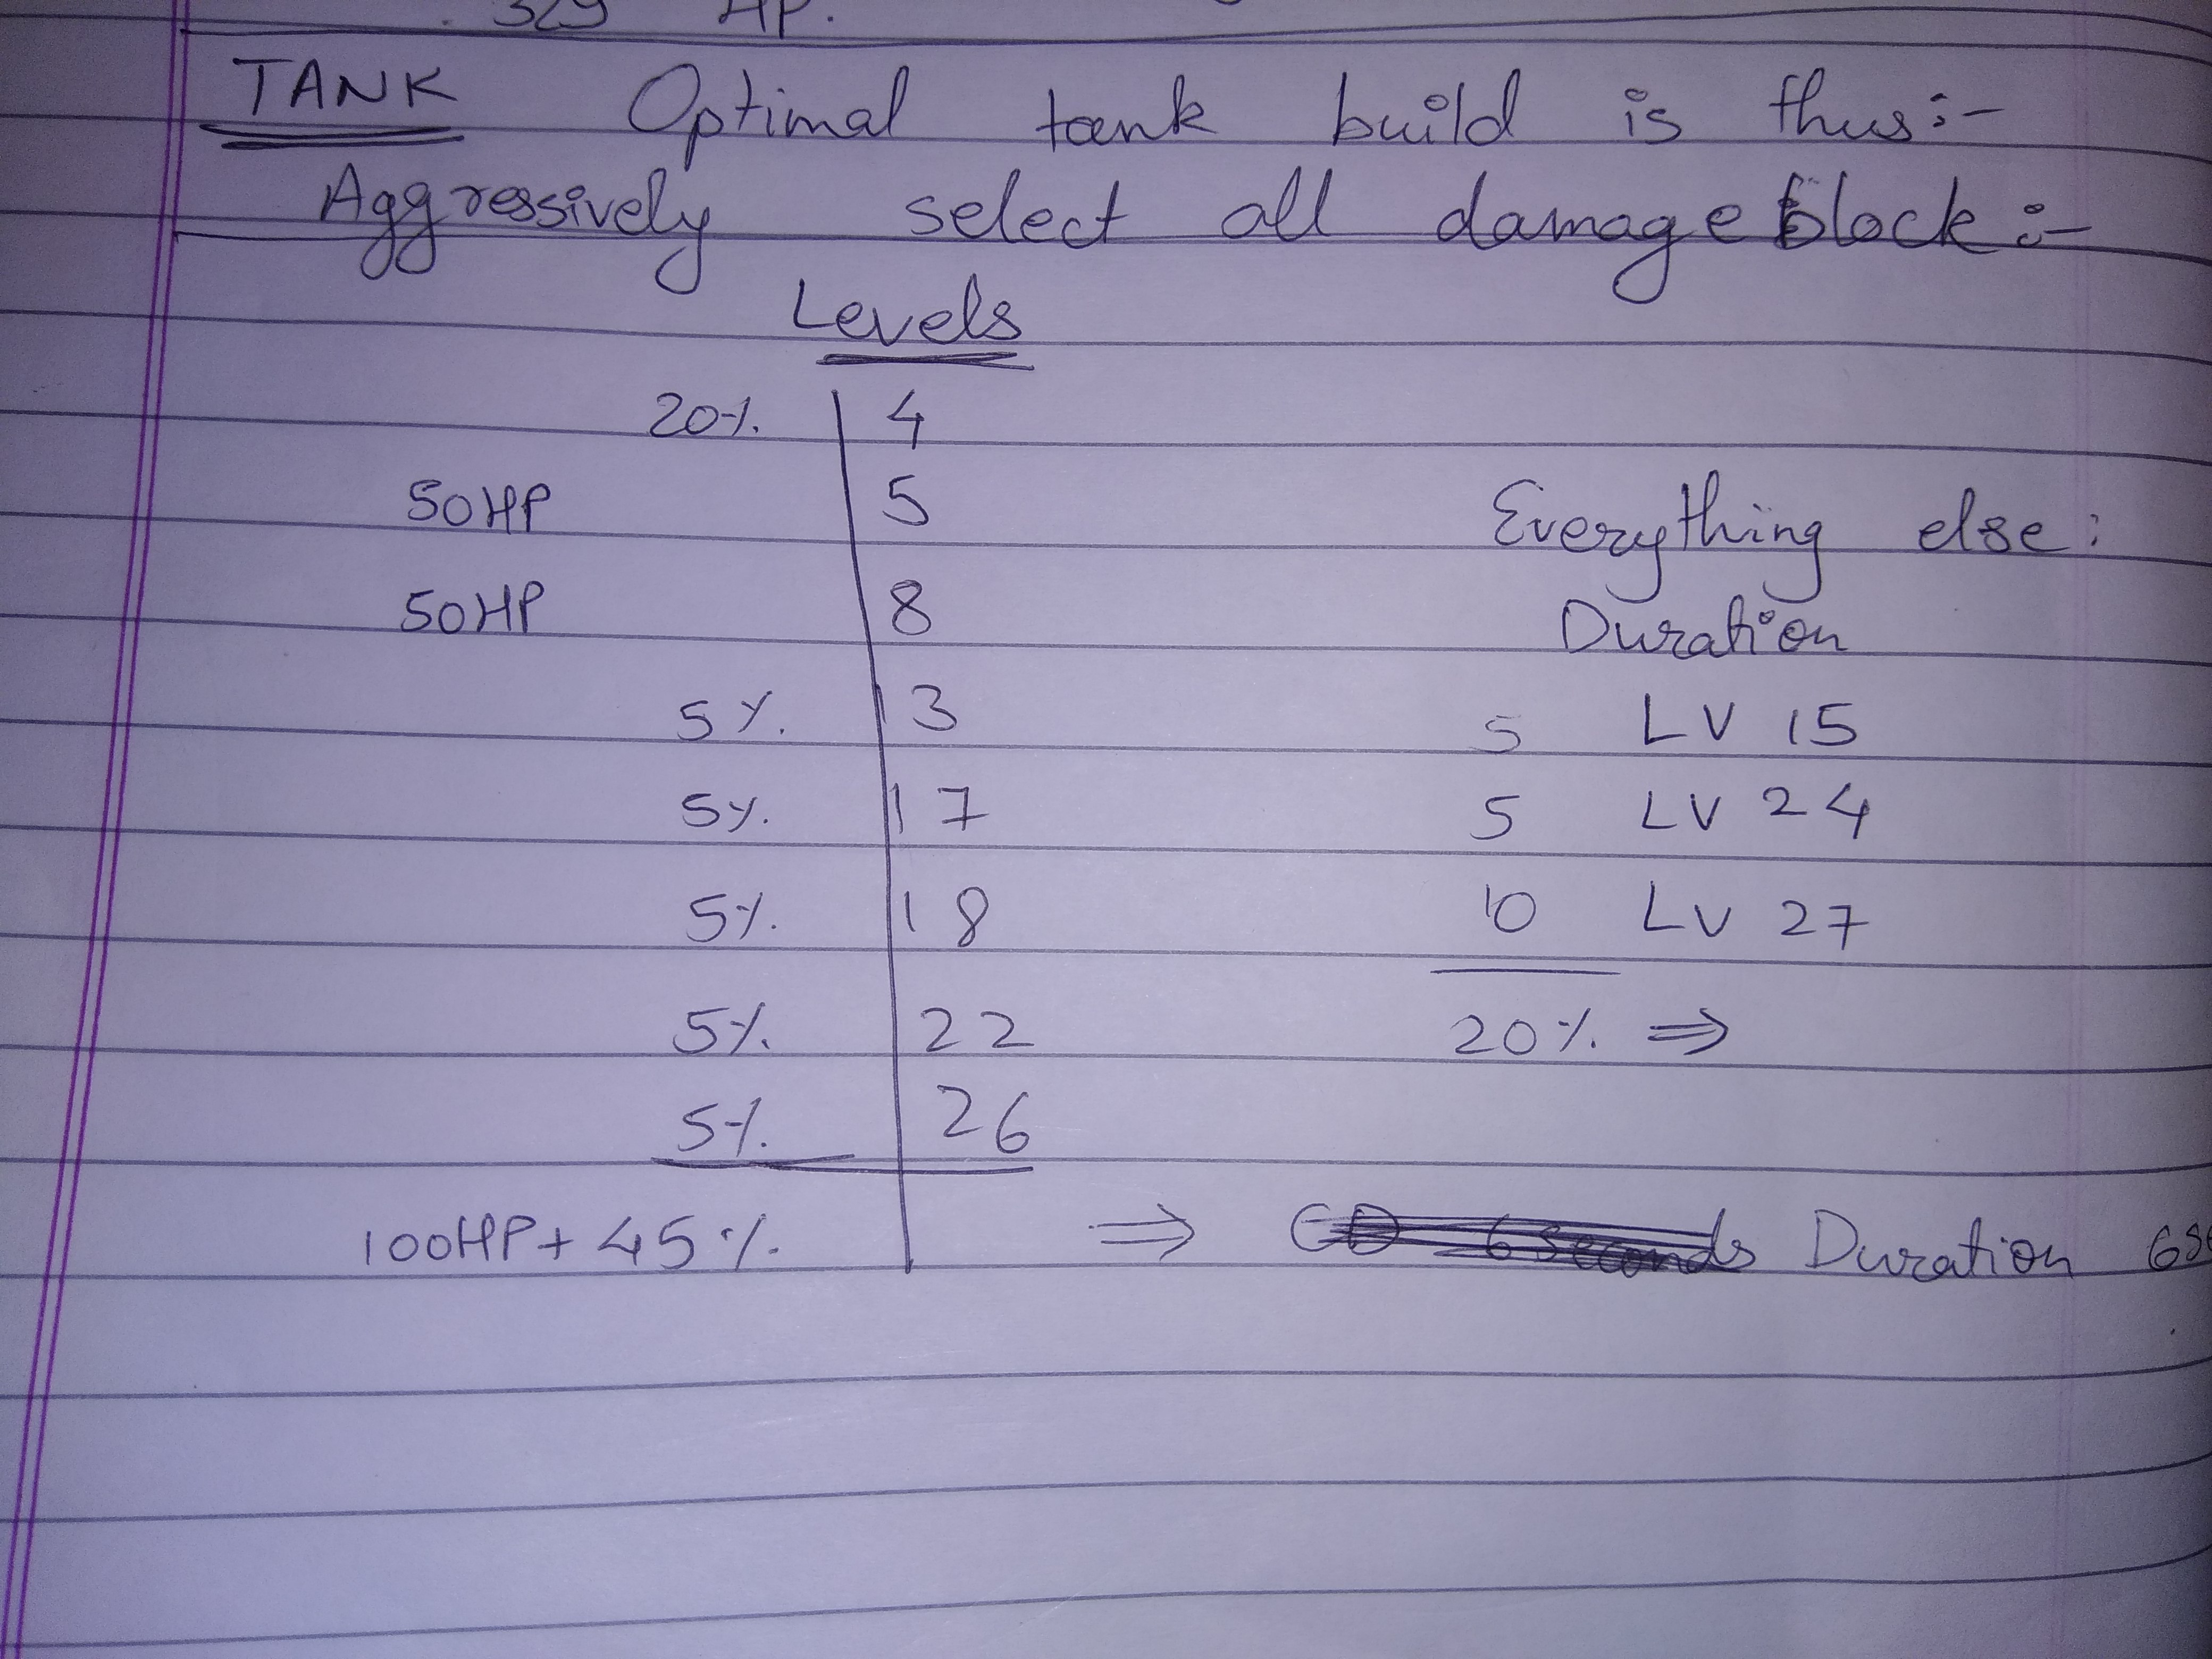 329 HP.
TANK Optimal tank build is thus:-
Aggressively select all damage block:-
Levels
20% 4
50HP 5
50HP 8
5% 13
5% 17
5% 18
5% 22
5% 26
100HP + 45% ⇒ Duration 6se
Everything else:
Duration
5 LV 15
5 LV 24
10 LV 27
20% ⇒